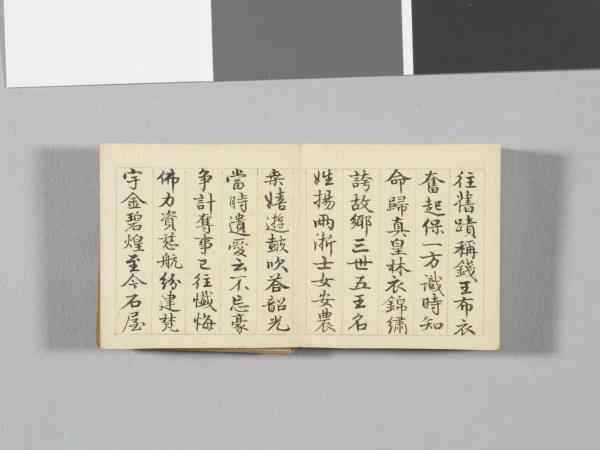 往舊蹟稱錢王布衣
奮起保一方識時知
命歸真皇林衣錦繡
誇故鄉三世五王名
姓揚兩浙士女安農
桑嬉遊鼓吹答韶光
當時遺愛云不忘豪
争計奪事已往懺悔
佛力資慈航紛建梵
宇金碧煌至今石屋